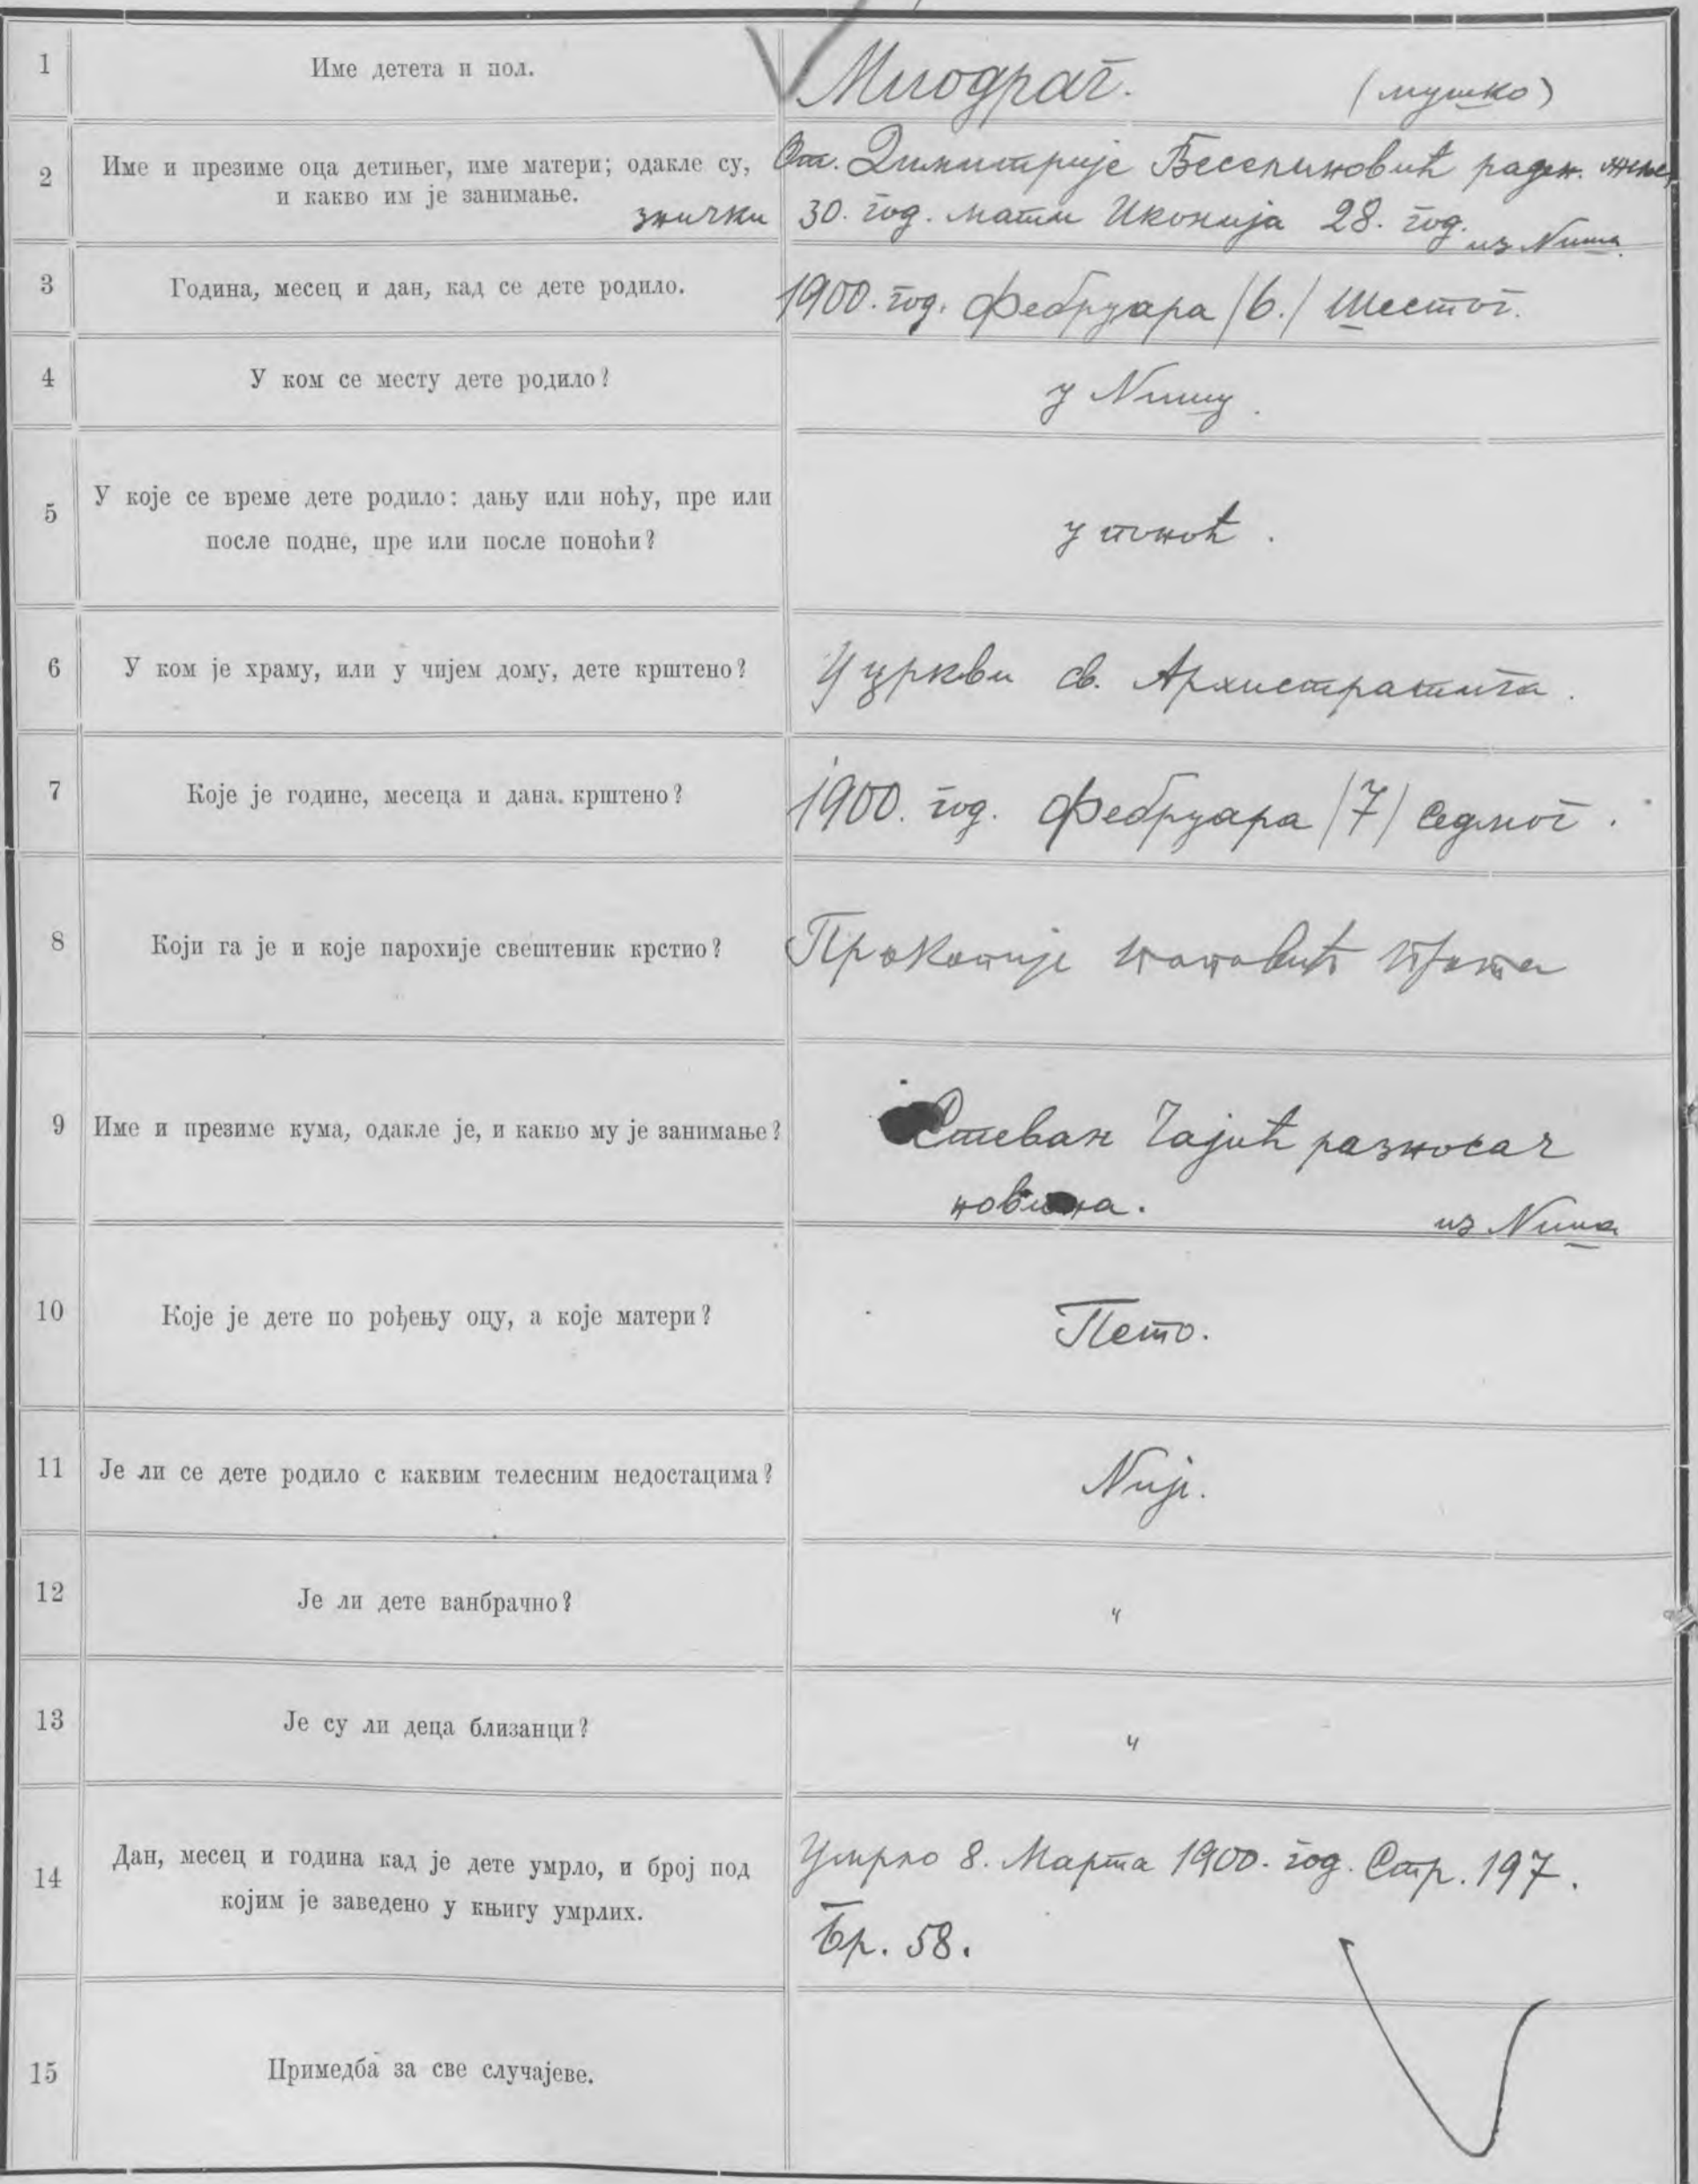 1 Име детета и пол. Миодраг. (мушко)
2 Име и презиме оца детињег, име матери; одакле су, От. Димитрије Весели­новић раден. жеље,
и какво им је занимање. знички 30. год. мати Иконија 28. год. из Ниша.
3 Година, месец и дан, кад се дете родило. 1900. год. Фебруара /6./ Шестог.
4 У ком се месту дете родило? у Нишу.
5 У које се време дете родило: дању или ноћу, пре или
после подне, пре или после поноћи? у поноћ.
6 У ком је храму, или у чијем дому, дете крштено? У цркви св. Архистратига.
7 Које је године, месеца и дана. крштено? 1900. год. Фебруара /7/ Седмог.
8 Који га је и које парохије свештеник крстио? Прокопије поповић прота
9 Име и презиме кума, одакле је, и какво му је занимање? Стеван Гајић разносач
новина. из Ниша
10 Које је дете по рођењу оцу, а које матери? Пето.
11 Је ли се дете родило с каквим телесним недостацима? Није.
12 Је ли дете ванбрачно? "
13 Је су ли деца близанци? "
14 Дан, месец и година кад је дете умрло, и број под Умрло 8. Марта 1900. год. Стр. 197.
којим је заведено у књигу умрлих. Бр. 58.
15 Примедба за све случајеве.